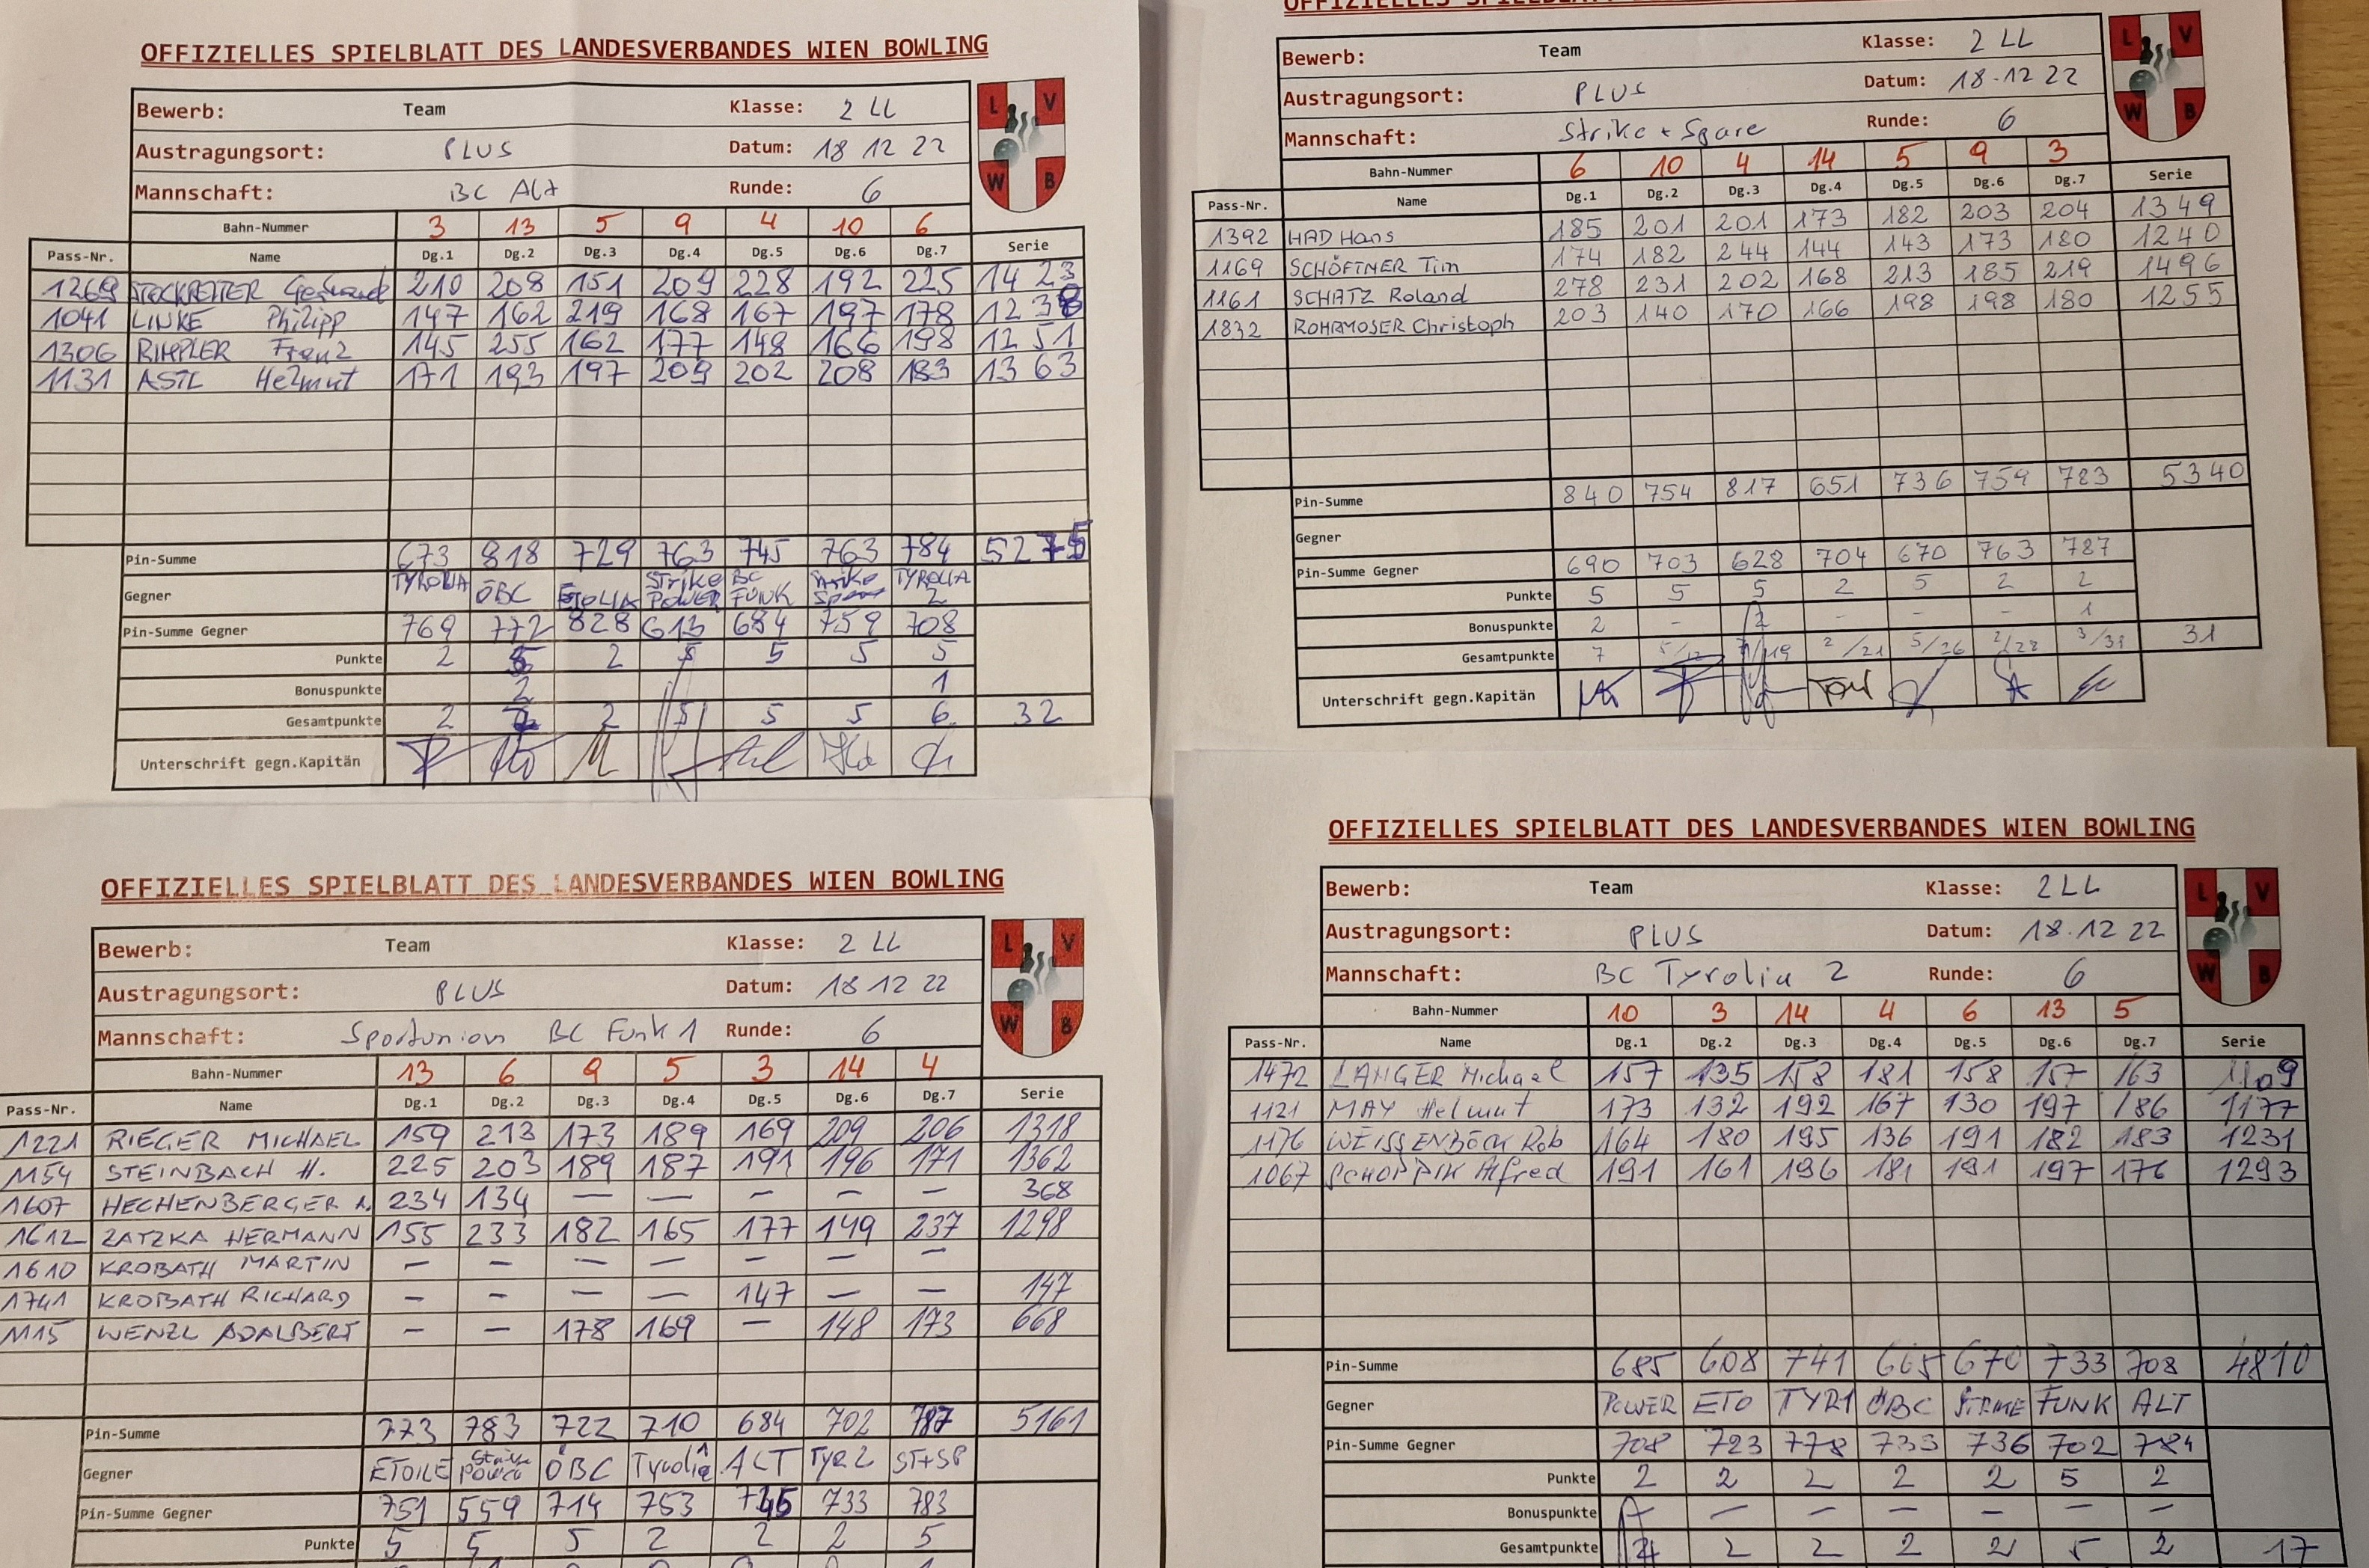 OFFIZIELLES SPIELBLATT DES LANDESVERBANDES WIEN BOWLING
Bewerb: Team Klasse: 2 LL
Austragungsort: PLUS Datum: 18 12 22
Mannschaft: BC Alt Runde: 6
L V W B
Bahn-Nummer 3 13 5 9 4 10 6
Pass-Nr. Name Dg.1 Dg.2 Dg.3 Dg.4 Dg.5 Dg.6 Dg.7 Serie
1269 210 208 151 209 228 192 225 1423
1041 LINKE Philipp 147 162 219 168 167 197 178 1238
1306 RIMPLER Franz 145 255 162 177 148 166 198 1251
1131 ASTL Helmut 171 193 197 209 202 208 183 1363
Pin-Summe 673 818 729 763 745 763 784 5275
Gegner TYROLIA ÖBC Strike POWER BC FUNK Strike TYROLIA 2
Pin-Summe Gegner 769 772 828 613 684 759 708
Punkte 2 5 2 5 5 5 5
Bonuspunkte 2 1
Gesamtpunkte 2 7 2 5 5 5 6 32
Unterschrift gegn.Kapitän
Bewerb: Team Klasse: 2 LL
Austragungsort: PLUS Datum: 18.12 22
Mannschaft: Strike + Spare Runde: 6
L V W B
Bahn-Nummer 6 10 4 14 5 9 3
Pass-Nr. Name Dg.1 Dg.2 Dg.3 Dg.4 Dg.5 Dg.6 Dg.7 Serie
1392 HAD Hans 185 201 201 173 182 203 204 1349
1169 SCHÖFTNER Tim 174 182 244 144 143 173 180 1240
1161 SCHATZ Roland 278 231 202 168 213 185 219 1496
1832 ROHRMOSER Christoph 203 140 170 166 198 198 180 1255
Pin-Summe 840 754 817 651 736 759 783 5340
Gegner
Pin-Summe Gegner 690 703 628 704 670 763 787
Punkte 5 5 5 2 5 2 2
Bonuspunkte 2 - 2 - - - 1
Gesamtpunkte 7 5/12 7/19 2/21 5/26 2/28 3/31 31
Unterschrift gegn.Kapitän
OFFIZIELLES SPIELBLATT DES LANDESVERBANDES WIEN BOWLING
Bewerb: Team Klasse: 2 LL
Austragungsort: PLUS Datum: 18 12 22
Mannschaft: Sportunion BC Funk 1 Runde: 6
L V W B
Bahn-Nummer 13 6 9 5 3 14 4
Pass-Nr. Name Dg.1 Dg.2 Dg.3 Dg.4 Dg.5 Dg.6 Dg.7 Serie
1221 RIEGER MICHAEL 159 213 173 189 169 209 206 1318
1154 STEINBACH H. 225 203 189 187 191 196 171 1362
1607 HECHENBERGER 234 134 — — — — — 368
1612 ZATZKA HERMANN 155 233 182 165 177 149 237 1298
1610 KROBATH MARTIN — — — — — — —
1741 KROBATH RICHARD — — — — 147 — — 147
1115 WENZL ADALBERT — — 178 169 — 148 173 668
Pin-Summe 773 783 722 710 684 702 787 5161
Gegner ETOILE Strike Power ÖBC Tyrolia 1 ALT TYR 2 ST+SP
Pin-Summe Gegner 751 559 714 753 745 733 783
Punkte 5 5 5 2 2 2 5
OFFIZIELLES SPIELBLATT DES LANDESVERBANDES WIEN BOWLING
Bewerb: Team Klasse: 2LL
Austragungsort: PLUS Datum: 18.12 22
Mannschaft: BC Tyrolia 2 Runde: 6
L V W B
Bahn-Nummer 10 3 14 4 6 13 5
Pass-Nr. Name Dg.1 Dg.2 Dg.3 Dg.4 Dg.5 Dg.6 Dg.7 Serie
1472 LANGER Michael 157 135 158 181 158 157 163 1109
1121 MAY Helmut 173 132 192 167 130 197 186 1177
1176 WEISSENBÖCK Rob 164 180 195 136 191 182 183 1231
1067 SCHOPPIK Alfred 191 161 196 181 191 197 176 1293
Pin-Summe 685 608 741 665 670 733 708 4810
Gegner POWER ETO TYR1 ÖBC STRIKE FUNK ALT
Pin-Summe Gegner 708 723 778 735 736 702 784
Punkte 2 2 2 2 2 5 2
Bonuspunkte — — — — — —
Gesamtpunkte 2 2 2 2 2 5 2 17